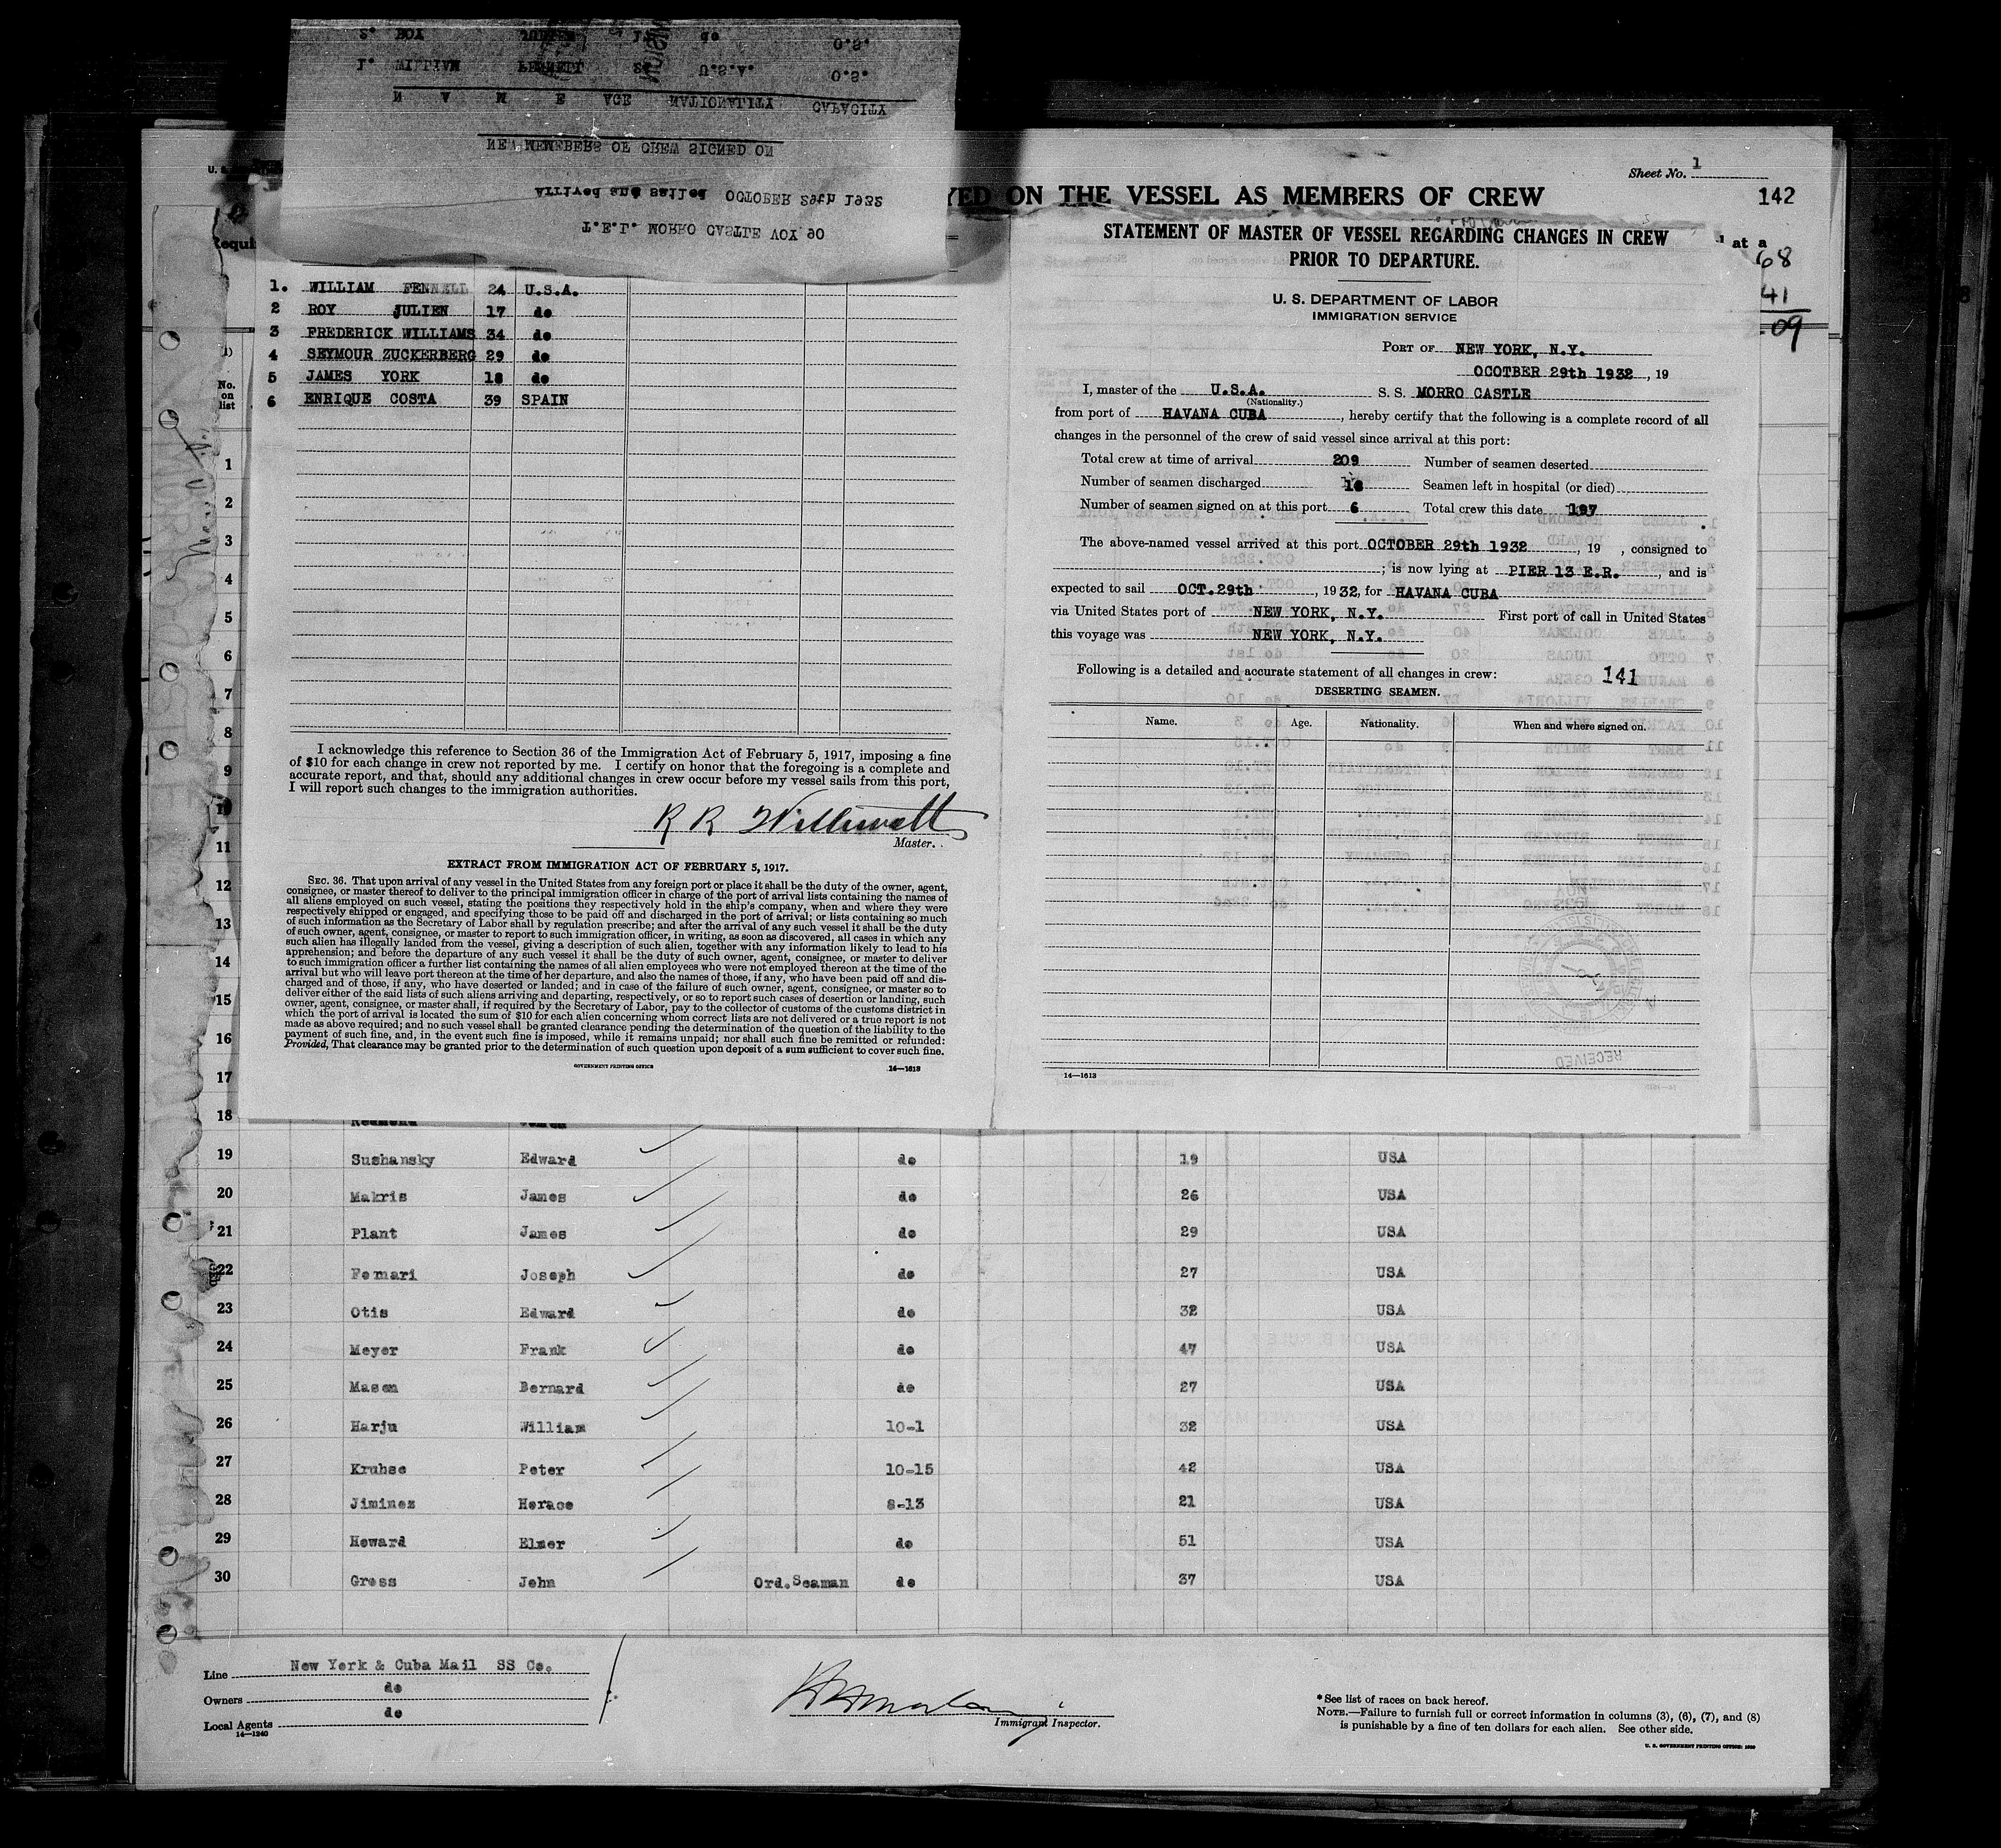 Sheet No. 1
YED ON THE VESSEL AS MEMBERS OF CREW
142
NEW MEMEBERS OF CREW SIGNED ON
Arrived and Sailed OCTOBER 29th 1932
T.E.L. MORRO CASTLE VOY 60
N A M E AGE NATIONALITY CAPACITY
1. WILLIAM FENNELL U.S.A. O.S.
2. ROY JULIEN 17 do O.S.
Requi
at a
68
41
09
1. WILLIAM FENNELL 24 U.S.A.
2 ROY JULIEN 17 do
3 FREDERICK WILLIAMS 34 do
4 SEYMOUR ZUCKERBERG 29 do
5 JAMES YORK 18 do
6 ENRIQUE COSTA 39 SPAIN
I acknowledge this reference to Section 36 of the Immigration Act of February 5, 1917, imposing a fine
of $10 for each change in crew not reported by me. I certify on honor that the foregoing is a complete and
accurate report, and that, should any additional changes in crew occur before my vessel sails from this port,
I will report such changes to the immigration authorities.
R R Willmott
Master.
EXTRACT FROM IMMIGRATION ACT OF FEBRUARY 5, 1917.
SEC. 36. That upon arrival of any vessel in the United States from any foreign port or place it shall be the duty of the owner, agent,
consignee, or master thereof to deliver to the principal immigration officer in charge of the port of arrival lists containing the names of
all aliens employed on such vessel, stating the positions they respectively hold in the ship's company, when and where they were
respectively shipped or engaged, and specifying those to be paid off and discharged in the port of arrival; or lists containing so much
of such information as the Secretary of Labor shall by regulation prescribe; and after the arrival of any such vessel it shall be the duty
of such owner, agent, consignee, or master to report to such immigration officer, in writing, as soon as discovered, all cases in which any
such alien has illegally landed from the vessel, giving a description of such alien, together with any information likely to lead to his
apprehension; and before the departure of any such vessel it shall be the duty of such owner, agent, consignee, or master to deliver
to such immigration officer a further list containing the names of all alien employees who were not employed thereon at the time of the
arrival but who will leave port thereon at the time of her departure, and also the names of those, if any, who have been paid off and dis-
charged and of those, if any, who have deserted or landed; and in case of the failure of such owner, agent, consignee, or master so to
deliver either of the said lists of such aliens arriving and departing, respectively, or so to report such cases of desertion or landing, such
owner, agent, consignee, or master shall, if required by the Secretary of Labor, pay to the collector of customs of the customs district in
which the port of arrival is located the sum of $10 for each alien concerning whom correct lists are not delivered or a true report is not
made as above required; and no such vessel shall be granted clearance pending the determination of the question of the liability to the
payment of such fine, and, in the event such fine is imposed, while it remains unpaid; nor shall such fine be remitted or refunded:
Provided, That clearance may be granted prior to the determination of such question upon deposit of a sum sufficient to cover such fine.
GOVERNMENT PRINTING OFFICE 14—1613
STATEMENT OF MASTER OF VESSEL REGARDING CHANGES IN CREW
PRIOR TO DEPARTURE.
U. S. DEPARTMENT OF LABOR
IMMIGRATION SERVICE
PORT OF NEW YORK, N.Y.
OCOTBER 29th 1932, 19
I, master of the U.S.A. S. S. MORRO CASTLE
(Nationality.)
from port of HAVANA CUBA, hereby certify that the following is a complete record of all
changes in the personnel of the crew of said vessel since arrival at this port:
Total crew at time of arrival 209 Number of seamen deserted
Number of seamen discharged 18 Seamen left in hospital (or died)
Number of seamen signed on at this port 6 Total crew this date 197
The above-named vessel arrived at this port OCTOBER 29th 1932, 19 , consigned to
; is now lying at PIER 13 E.R., and is
expected to sail OCT.29th, 1932, for HAVANA CUBA
via United States port of NEW YORK, N.Y. First port of call in United States
this voyage was NEW YORK, N.Y.
Following is a detailed and accurate statement of all changes in crew: 141
DESERTING SEAMEN.
Name. Age. Nationality. When and where signed on.
RECEIVED
14—1613
No.
on
list
1
2
3
4
5
6
7
8
9
10
11
12
13
14
15
16
17
18 Redmond
19 Sushansky Edward do 19 USA
20 Makris James do 26 USA
21 Plant James do 29 USA
22 Fernari Joseph do 27 USA
23 Otis Edward do 32 USA
24 Meyer Frank do 47 USA
25 Mason Bernard do 27 USA
26 Harju William 10-1 32 USA
27 Kruhse Peter 10-15 42 USA
28 Jiminez Horace 8-13 21 USA
29 Howard Elmer do 51 USA
30 Gross John Ord.Seaman do 37 USA
Line New York & Cuba Mail SS Co.
Owners do
Local Agents do
14—1240
Immigrant Inspector.
*See list of races on back hereof.
NOTE.—Failure to furnish full or correct information in columns (3), (6), (7), and (8)
is punishable by a fine of ten dollars for each alien. See other side.
U. S. GOVERNMENT PRINTING OFFICE: 1930